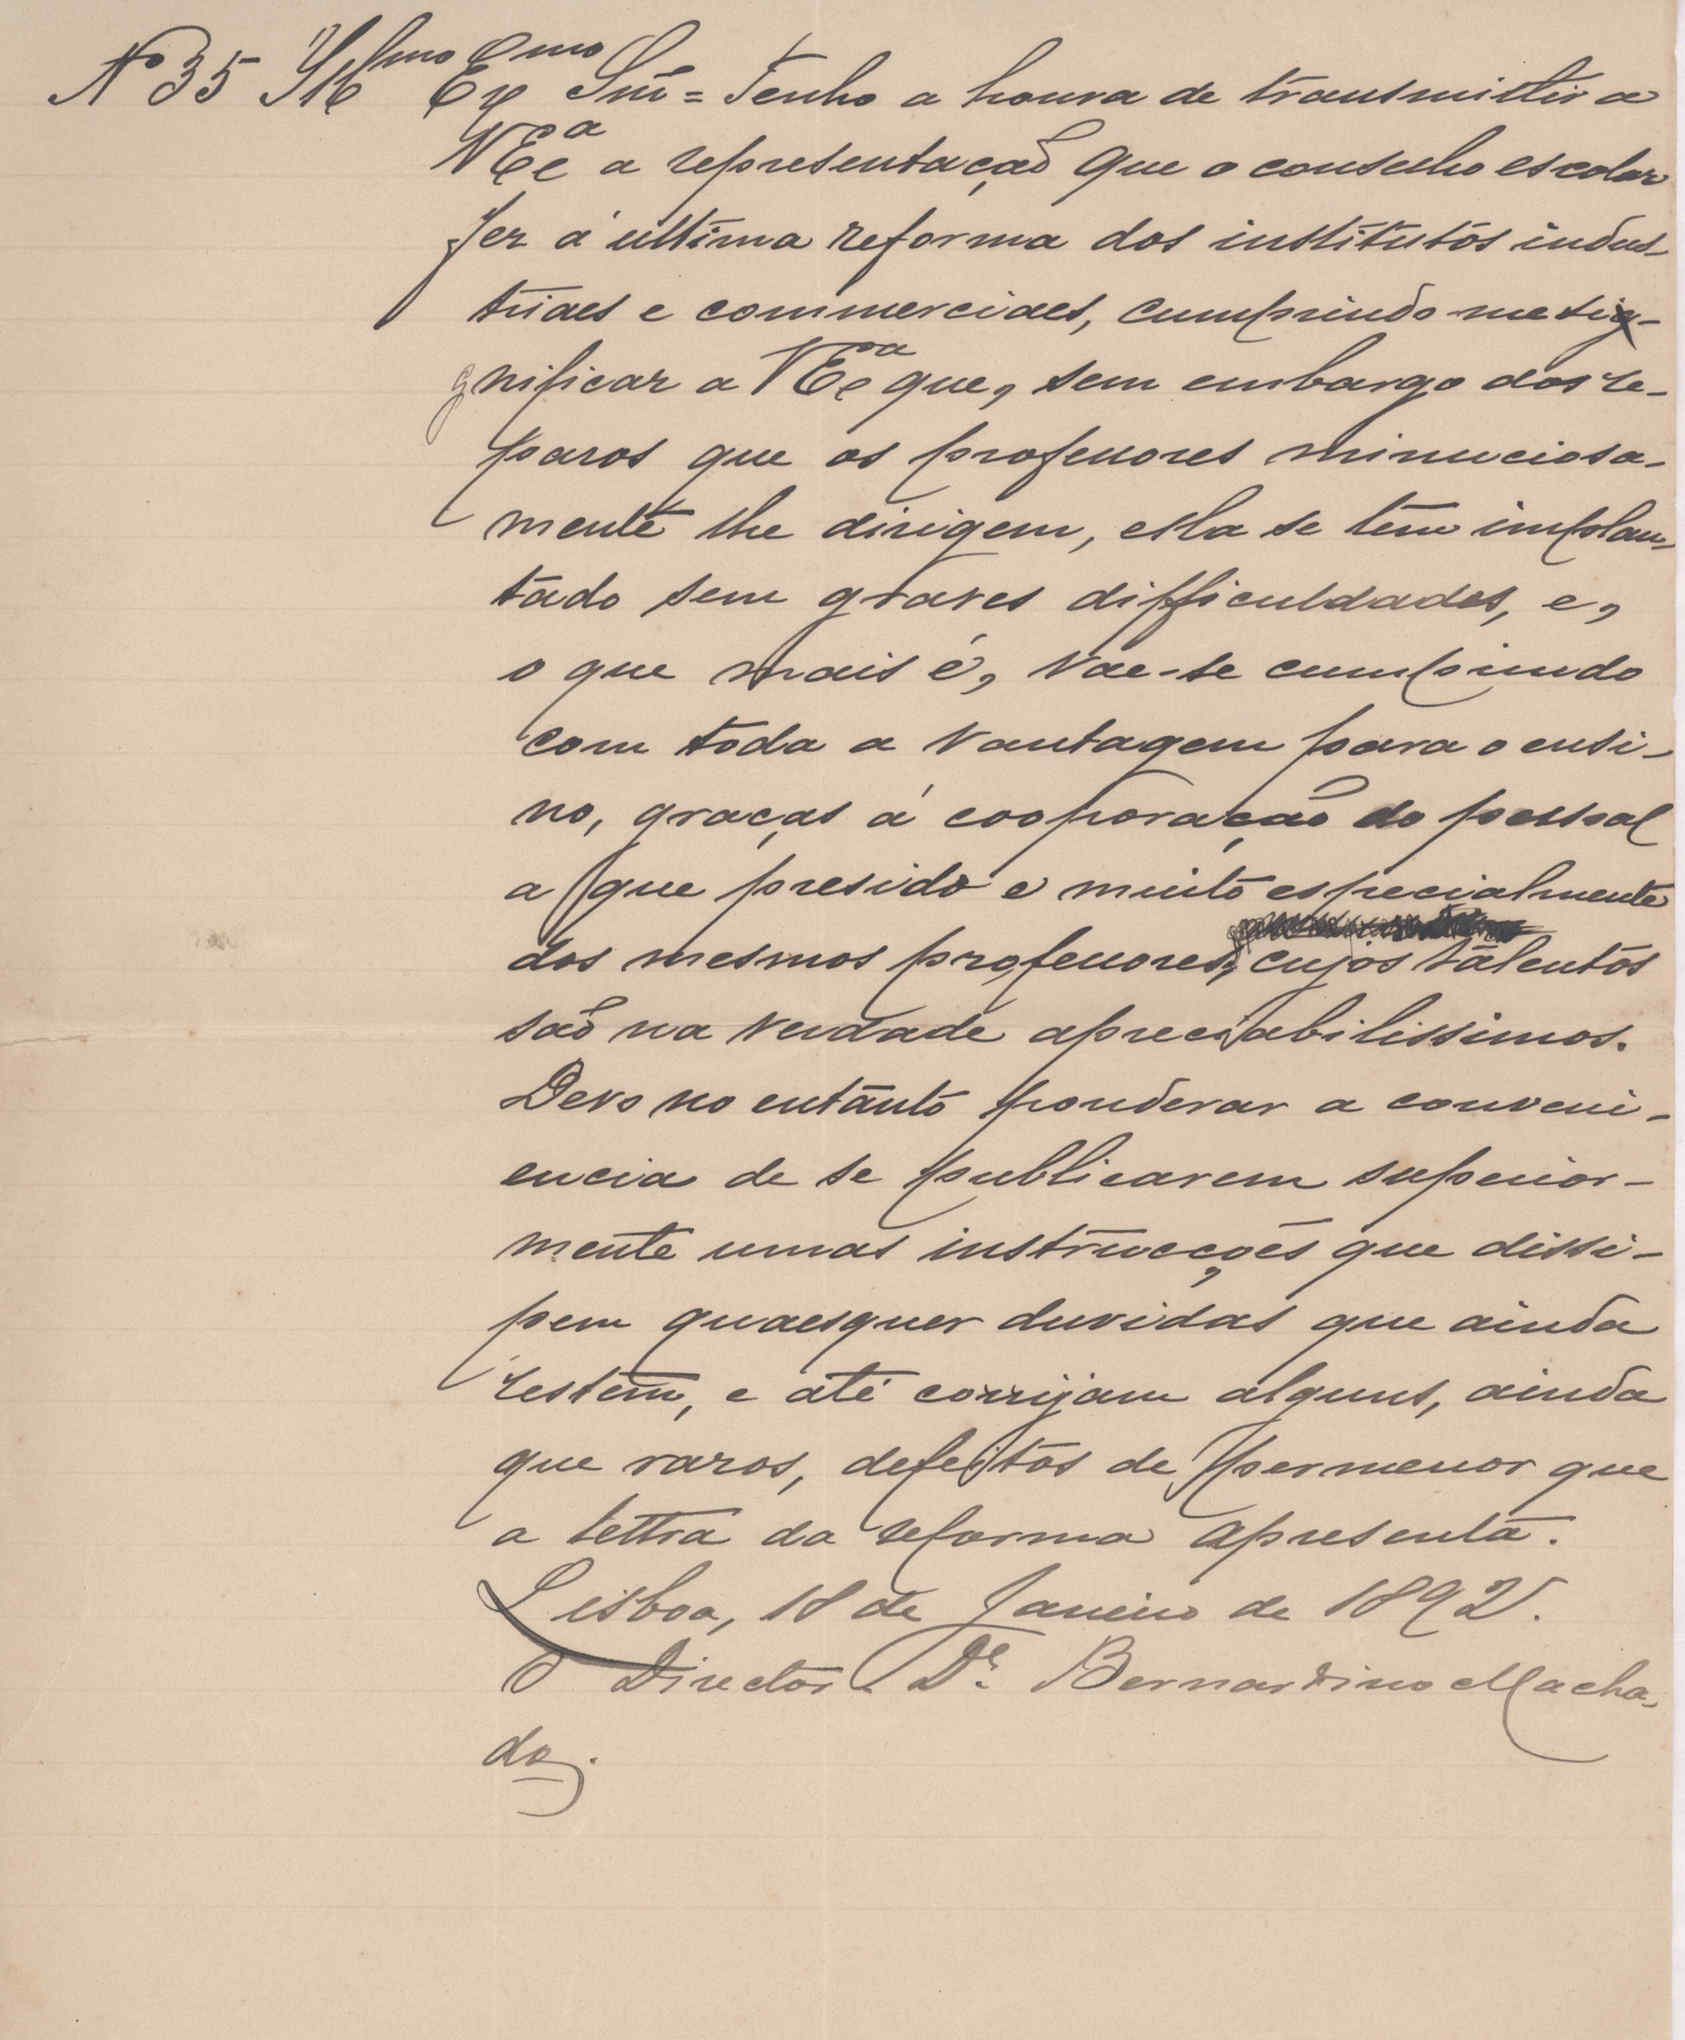 Nº 35 Illmo Exmo Snr = Tenho a honra de transmittir a
VExcia a representação que o conselho escolar
fez á ultima reforma dos institutos indus-
triaes e commerciaes, cumprindo-me sig-
gnificar a VExcia que, sem embargo dos re-
paros que os professores minuciosa-
mente lhe dirigem, ella se tem implan-
tado sem graves difficuldades, e,
o que mais é, vae-se cumprindo
com toda a vantagem para o ensi-
no, graças á cooporação do pessoal
a que presido e muito especialmente
dos mesmos professores, cujos talentos
são na verdade apreciabilissimos.
Devo no entanto ponderar a conveni-
encia de se publicarem superior-
mente umas instrucções que dissi-
pem quaesquer duvidas que ainda
restem, e até corrijam alguns, ainda
que raros, defeitos de permenor que
a lettra da reforma apresenta.
Lisboa, 18 de Janeiro de 1892.
O Director Dr. Bernardino Macha-
do.